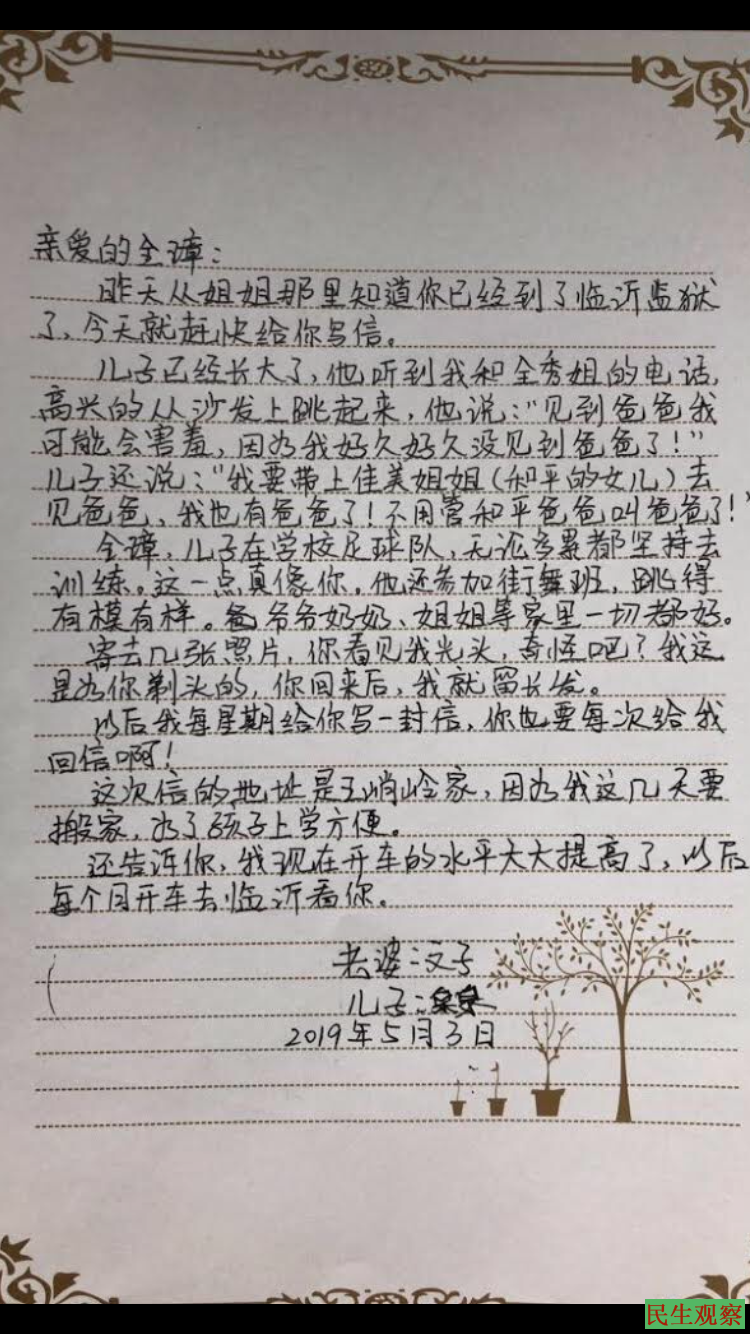 亲爱的全璋：
昨天从姐姐那里知道你已经到了临沂监狱
了，今天就赶快给你写信。
儿子已经长大了，他听到我和全秀姐的电话，
高兴的从沙发上跳起来，他说：“见到爸爸我
可能会害羞，因为我好久好久没见到爸爸了！”
儿子还说：“我要带上佳美姐姐（和平的女儿）去
见爸爸，我也有爸爸了！不用管和平爸爸叫爸爸了！”
全璋，儿子在学校足球队，无论多累都坚持去
训练。这一点真像你。他还参加街舞班，跳得
有模有样。爷爷奶奶、姐姐等家里一切都好。
寄去几张照片，你看见我光头，奇怪吧？我这
是为你剃头的，你回来后，我就留长发。
以后我每星期给你写一封信，你也要每次给我
回信啊！
这次信的地址是王峭岭家，因为我这几天要
搬家，为了孩子上学方便。
还告诉你，我现在开车的水平大大提高了，以后
每个月开车去临沂看你。
老婆：文子
儿子：泉泉
2019年5月3日
民生观察